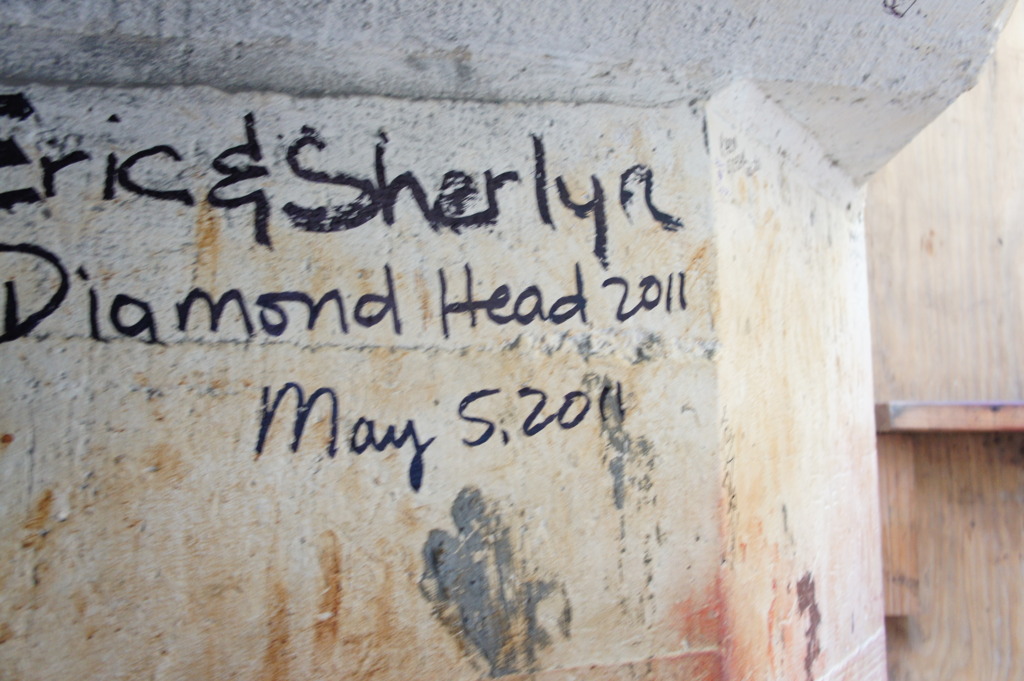 Eric & Sherlyn
Diamond Head 2011
May 5, 2011